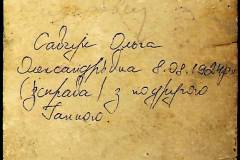 Савчук Ольга
Олександрівна 8.08.1924р.
(зправа) з подругою
Ганною.